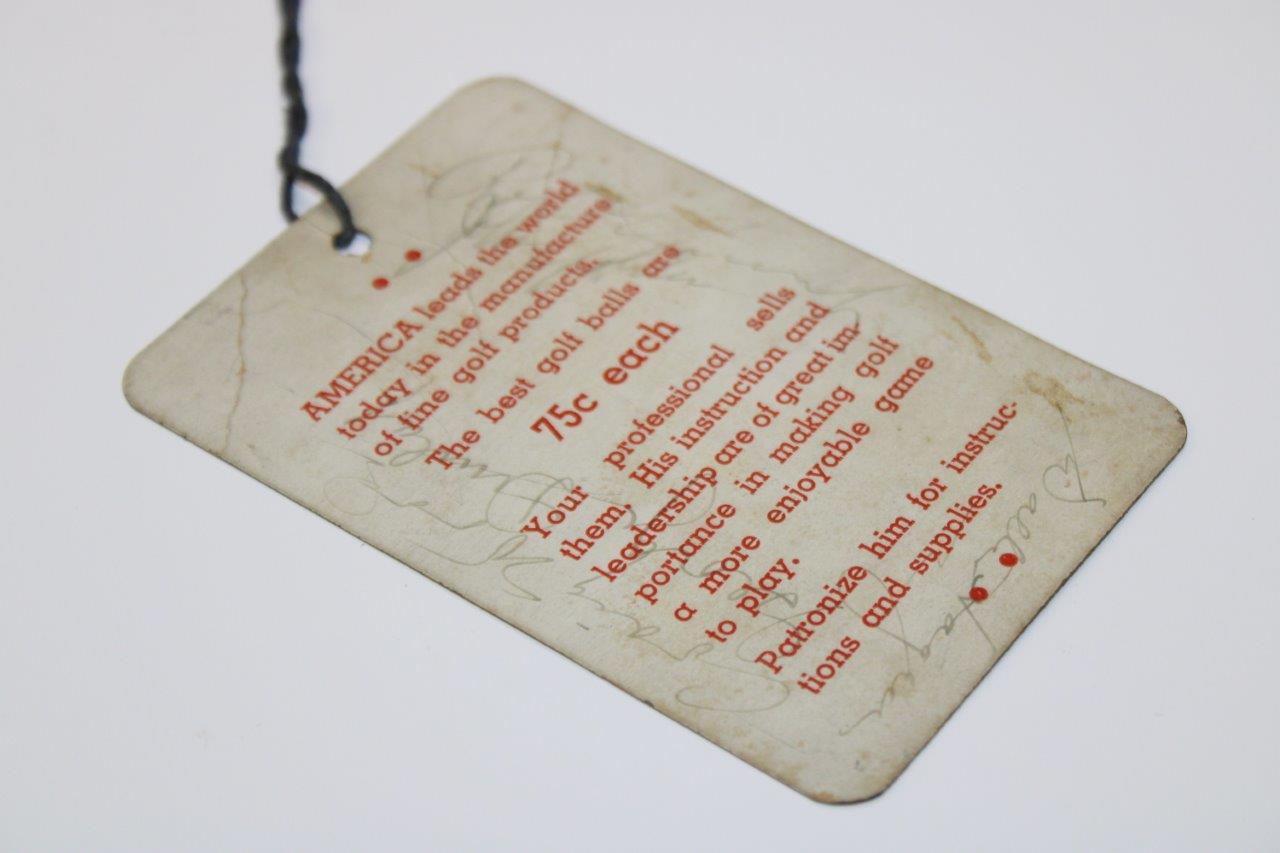 AMERICA leads the world
today in the manufacture
of fine golf products.
The best golf balls are
75c each
Your professional sells
them. His instruction and
leadership are of great im-
portance in making golf
a more enjoyable game
to play.
Patronize him for instruc-
tions and supplies.
Walter Hagen